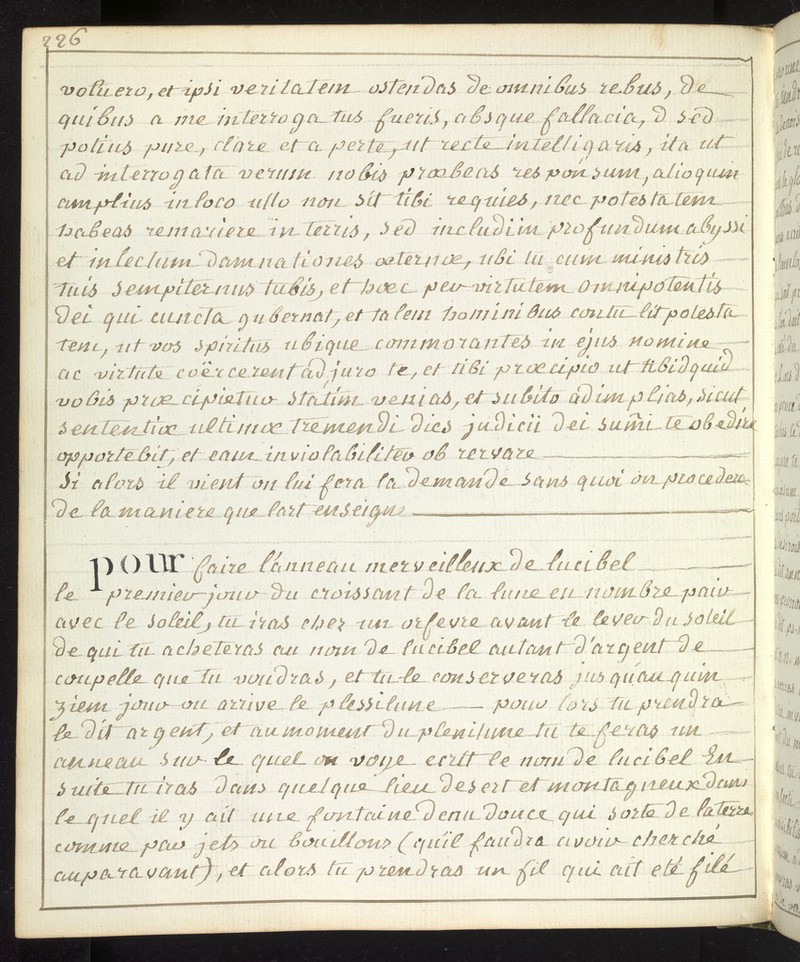 226
voluero, et ipsi veritatem ostendas de omnibus rebus, de
quibus a me interroga tus fueris, absque fallacia, d sed
potius pure, clare et a perte, ut recte intelligaris, ita ut
ad interrogata verum nobis præbeas responsum, alioquin
amplius in loco ullo non sit tibi requies, nec potestatem
habeas remaniere in terris, sed includi in profundum abyssi
et in lectum damnationes æternæ, ubi tu cum ministris
tuis sempiternus tubis, et hæc per virtutem omnipotentis
Dei qui cuncta gubernat, et talem hominibus contu lit potesta
tem, ut vos spiritus ubique commorantes in ejus nomine
ac virtute coërcerent adjuro te, et tibi præcipio ut tibi dquid
vobis præ cipietur statim venias, et subito adimplias, sicut
sententiæ ultimæ tremendi dies judicii Dei sumi te obedire
opportebit, et eam inviolabiliter ob rervare
Si alors il vient on lui fera la demande sans quoi on procedera
de la maniere que l'art enseigne
pour faire l'anneau merveilleux de lucibel
le premier jour du croissant de la lune en nombre pair
avec le soleil, tu iras chez un orfevre avant le lever du soleil
de qui tu acheteras au nom de lucibel autant d'argent de
coupelle que tu voudras, et tu le conserveras jusqu'au quin
ziem jour ou arrive le plessilune pour lors tu prendra
le dit argent, et au moment du plenilune tu te feras un
anneau sur le quel on voye ecrit le nom de lucibel En
suite tu iras dans quelque lieu desert et montagneux dans
le quel il y ait une fontaine d'eau douce qui sorte de la terre
comme par jets ou bouillons (qu'il faudra avoir cherché
auparavant), et alors tu prendras un fil qui ait eté filé